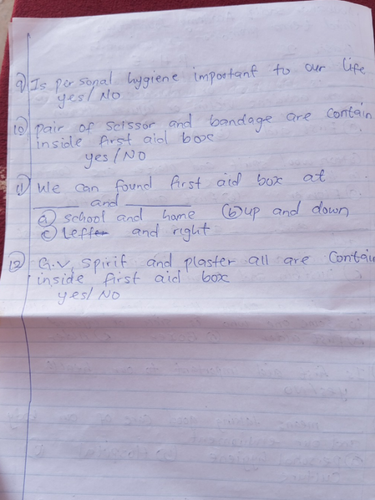 9) Is personal hygiene important to our life
yes/NO
10) pair of scissor and bandage are contain
inside first aid box
yes/NO
11) We can found first aid box at
______ and ________
(a) school and home (b) up and down
(c) Left and right
12) G.V, Spirit and plaster all are contain
inside first aid box
yes/NO